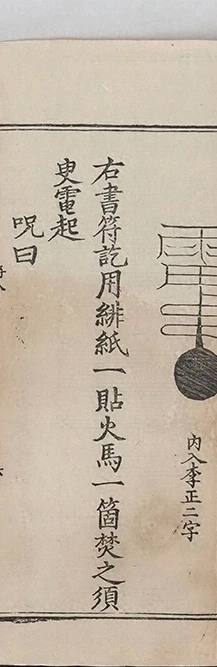 内入李正二字
右書符訖用緋紙一貼火馬一箇焚之須
㬰電起
呪曰